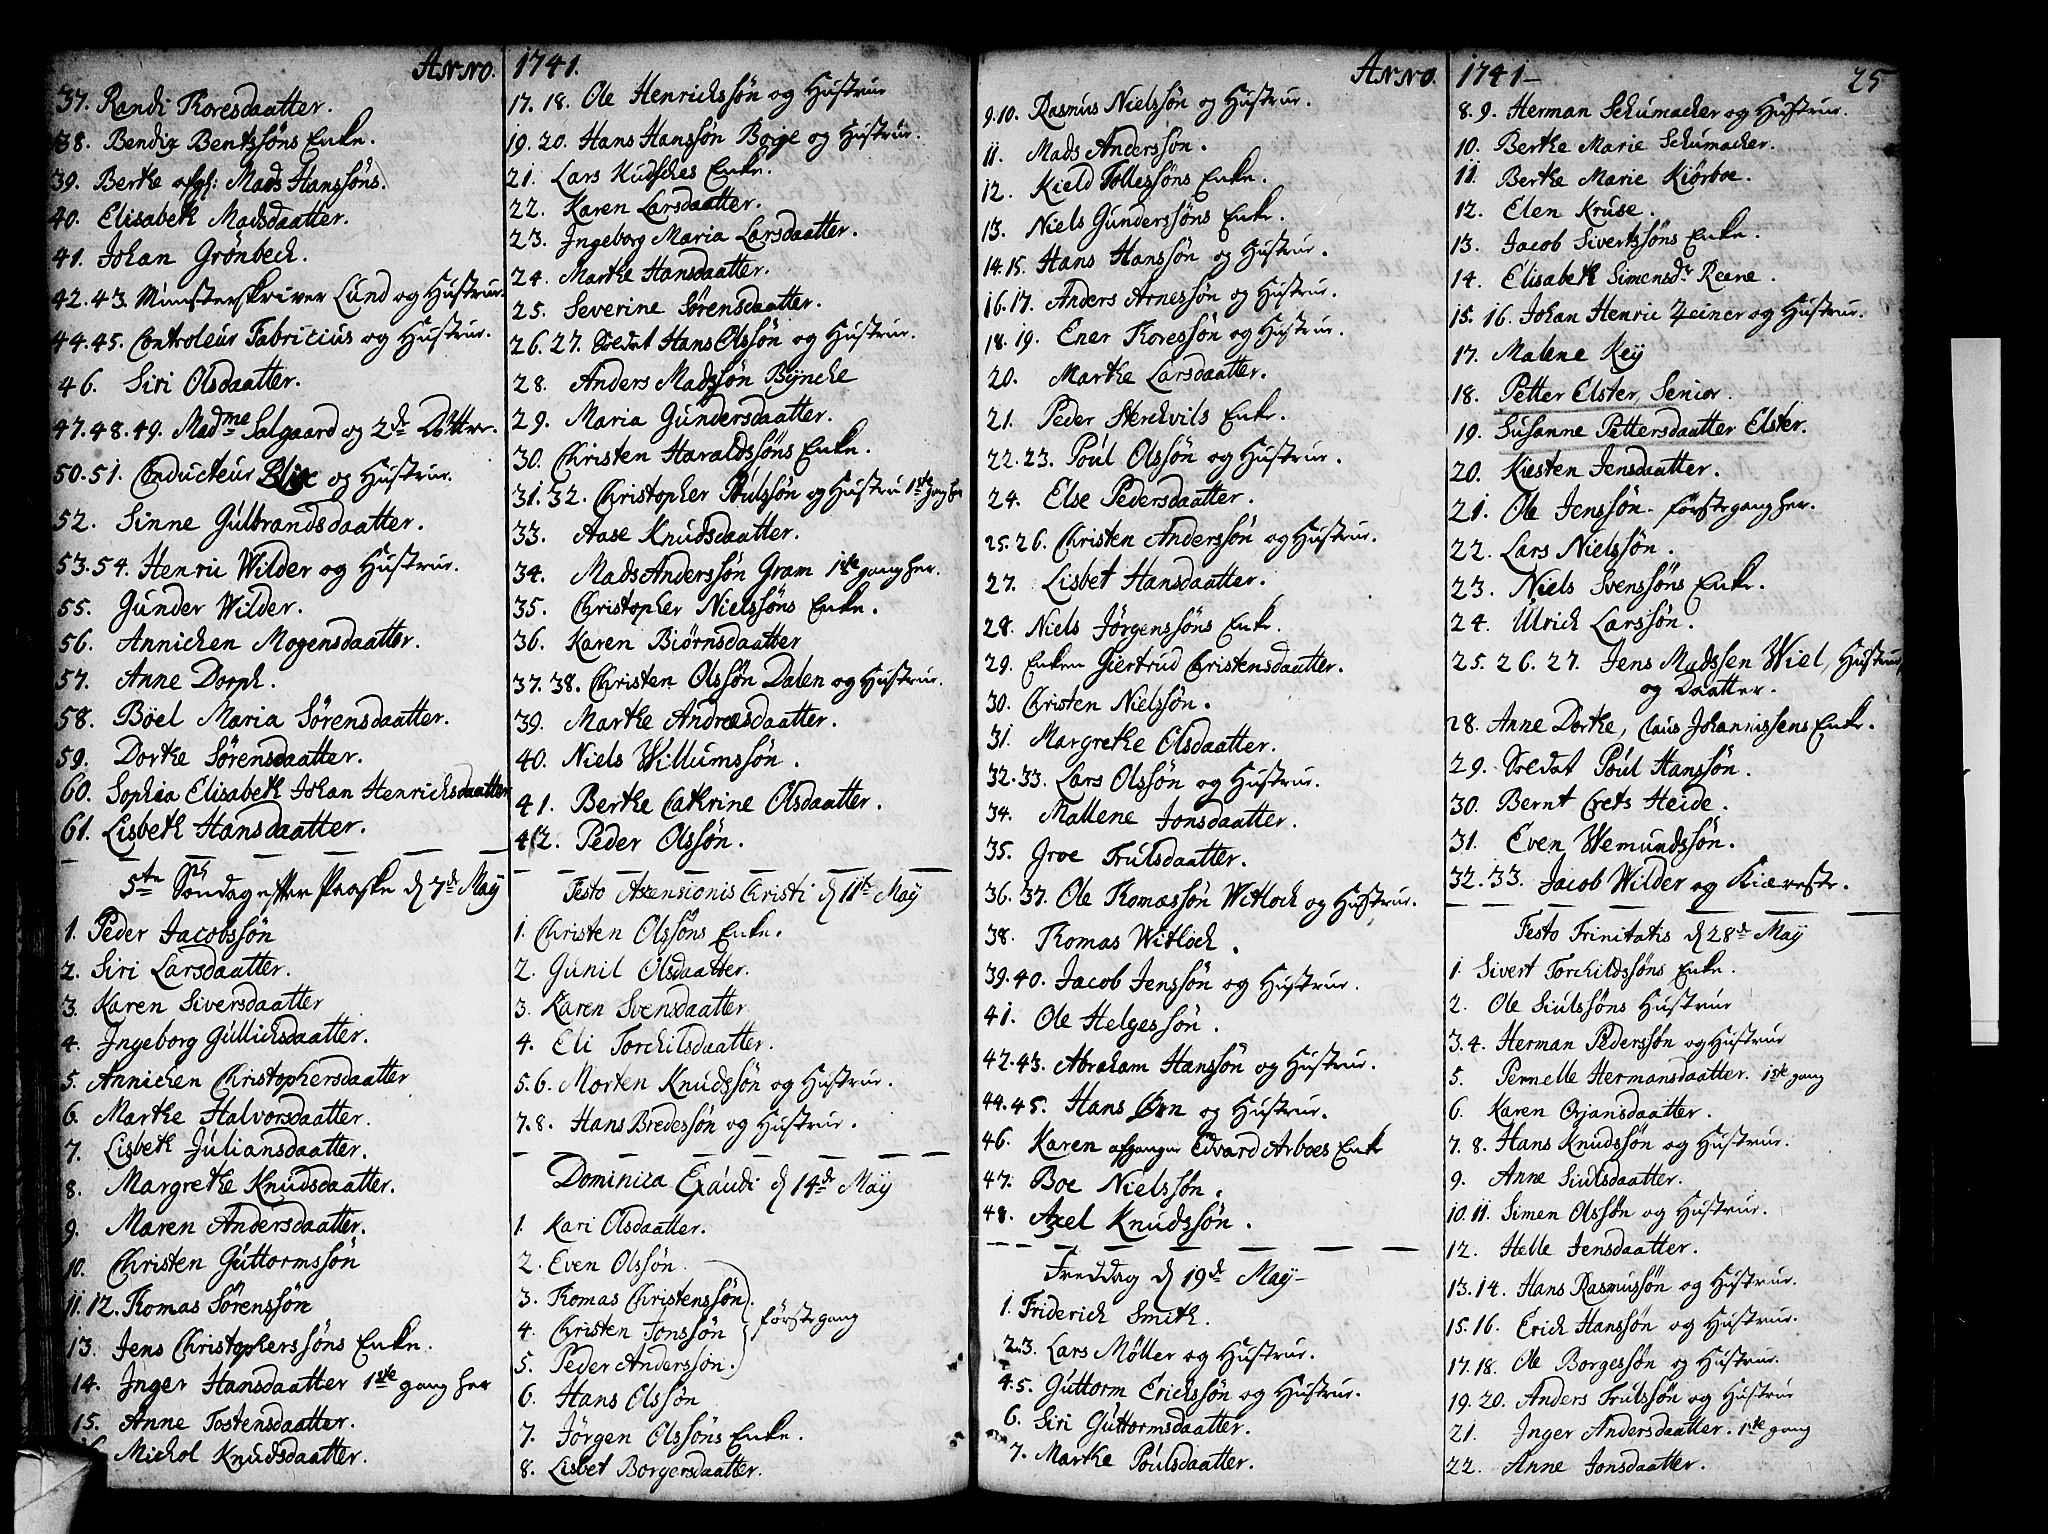 Anno. 1741.
37. Randi Thoresdaatter.
38. Bendix Bentssøns Enke.
39. Berthe afgl: Mads Hanssøns.
40. Elisabeth Madsdaatter.
41. Johan Grönbeck.
42. 43. Mÿnsterskriver Lund og Hustrue.
44. 45. Controleur Fabricius og Hustrue.
46. Siri Olsdaatter.
47. 48. 49. Madme Salgaard og 2de Döttre.
50. 51. Conducteur Blix og Hustrue.
52. Sinne Gulbrandsdaatter.
53. 54. Henric Wilder og Hustrue.
55. Gunder Wilder.
56. Annichen Mogensdaatter.
57. Anne Dorph.
58. Böel Maria Sörensdaatter.
59. Dorthe Sörensdaatter.
60. Sophia Elisabeth Johan Henrichsdaatter
61. Lisbeth Hansdaatter.
5te Søndag efter Paaske d 7de Maÿ
1. Peder Jacobssön
2. Siri Larsdaatter.
3. Karen Siversdaatter
4. Ingeborg Gullichsdaatter.
5. Annichen Christophersdaatter
6. Marthe Halvorsdaatter.
7. Lisbeth Juliansdaatter.
8. Margrethe Knudsdaatter.
9. Maren Andersdaatter.
10. Christen Guttormssön
11. 12. Thomas Sörenssön
13. Jens Christopherssöns Enke.
14. Inger Hansdaatter 1ste gang her
15. Anne Tostensdaatter.
16. Michol Knudsdaatter.
17. 18. Ole Henrichssön og Hustrue
19. 20. Hans Hanssön Boige og Hustrue.
21. Lars Kudsches Enke.
22. Karen Larsdaatter.
23. Ingeborg Maria Larsdaatter.
24. Marthe Hansdaatter.
25. Severine Sörensdaatter.
26. 27. Soldat Hans Olssön og Hustrue.
28. Anders Madssön Bÿncke
29. Maria Gundersdaatter.
30. Christen Haraldssöns Enke.
31. 32. Christopher Poulssön og Hustru 1ste gang her
33. Aase Knudsdaatter.
34. Mads Anderssön Gram 1ste gang her.
35. Christopher Nielssöns Enke.
36. Karen Biörnsdaatter
37. 38. Christen Olssön Dalen og Hustrue.
39. Marthe Andræsdaatter.
40. Niels Willumssön.
41. Berthe Cathrine Olsdaatter.
42. Peder Olssön.
Festo Ascensionis Christi d 11te Maÿ
1. Christen Olssöns Enke.
2. Gunil Olsdaatter.
3. Karen Svensdaatter
4. Eli Torchilsdaatter.
5. 6. Morten Knudssön og Hustrue.
7. 8. Hans Bredessön og Hustrue.
Dominica Exaudi d 14de Maÿ
1. Kari Olsdaatter.
2. Even Olssön
3. Thomas Christenssön
4. Christen Jonssön förstegang
5. Peder Anderssön.
6. Hans Olssön
7. Jörgen Olssöns Enke.
8. Lisbet Borgersdaatter.
Anno. 1741- 25
9. 10. Rasmus Nielssön og Hustrue.
11. Mads Anderssön.
12. Kield Tollessöns Enke.
13. Niels Gunderssöns Enke.
14. 15. Hans Hanssön og Hustrue.
16. 17. Anders Arnessön og Hustrue.
18. 19. Ener Thoressön og Hustrue.
20. Marthe Larsdaatter.
21. Peder Sterchvils Enke.
22. 23. Poul Olssön og Hustrue.
24. Else Pedersdaatter.
25. 26. Christen Anderssön og Hustrue.
27. Lisbet Hansdaatter.
28. Niels Jörgenssöns Enke.
29. Enken Giertrud Christensdaatter.
30. Christen Nielssön.
31. Margrethe Olsdaatter.
32. 33. Lars Olssön og Hustrue.
34. Mallene Jonsdaatter.
35. Jroe Trulsdaatter.
36. 37. Ole Thomæssön Witloch og Hustrue.
38. Thomas Witloch.
39. 40. Jacob Jenssön og Hustrue.
41. Ole Helgessön.
42. 43. Abraham Hanssön og Hustrue.
44. 45. Hans Örn og Hustrue.
46. Karen afgangne Edvard Arboes Enke
47. Boe Nielssøn.
48. Axel Knudssön.
Freddag d 19de Maÿ-
1. Friderich Smith.
2. 3. Lars Möller og Hustrue.
4. 5. Guttorm Erichssön og Hustrue.
6. Siri Guttormsdaatter.
7. Marthe Poulsdaatter.
8. 9. Herman Schumacher og Hustrue.
10. Berthe Marie Schumacher.
11. Berthe Marie Kiörboe.
12. Elen Kruse.
13. Jacob Sivertssöns Enke.
14. Elisabeth Simensdr Reene.
15. 16. Johan Henric Zeiner og Hustrue.
17. Malene Keÿ
18. Petter Elster, Senior.
19. Susanne Pettersdaatter Elster.
20. Kiesten Jensdaatter.
21. Ole Jenssön- förstegang her.
22. Lars Nielssön.
23. Niels Svenssöns Enke.
24. Ulrich Larssön.
25. 26. 27. Jens Madssen Wiel, Hustrue
og Daatter.
28. Anne Dorthe, Claus Johannissens Enke.
29. Soldat Poul Hanssön.
30. Bernt Crets Heide.
31. Even Wemundssön.
32. 33. Jacob Wilder og Kiæreste.
Festo Trinitatis d 28de Maÿ
1. Sivert Torchildssöns Enke.
2. Ole Siulssöns Hustrue
3. 4. Herman Pederssön og Hustrue
5. Pernelle Hermansdaatter. 1ste gang
6. Karen Örjansdaatter.
7. 8. Hans Knudssön og Hustrue.
9. Anne Siulsdaatter.
10. 11. Simen Olssön og Hustrue.
12. Helle Jensdaatter.
13. 14. Hans Rasmussön og Hustrue.
15. 16. Erich Hanssön og Hustrue.
17. 18. Ole Borgessön og Hustrue.
19. 20. Anders Trulssön og Hustrue
21. Inger Andersdaatter. 1ste gang
22. Anne Jonsdaatter.